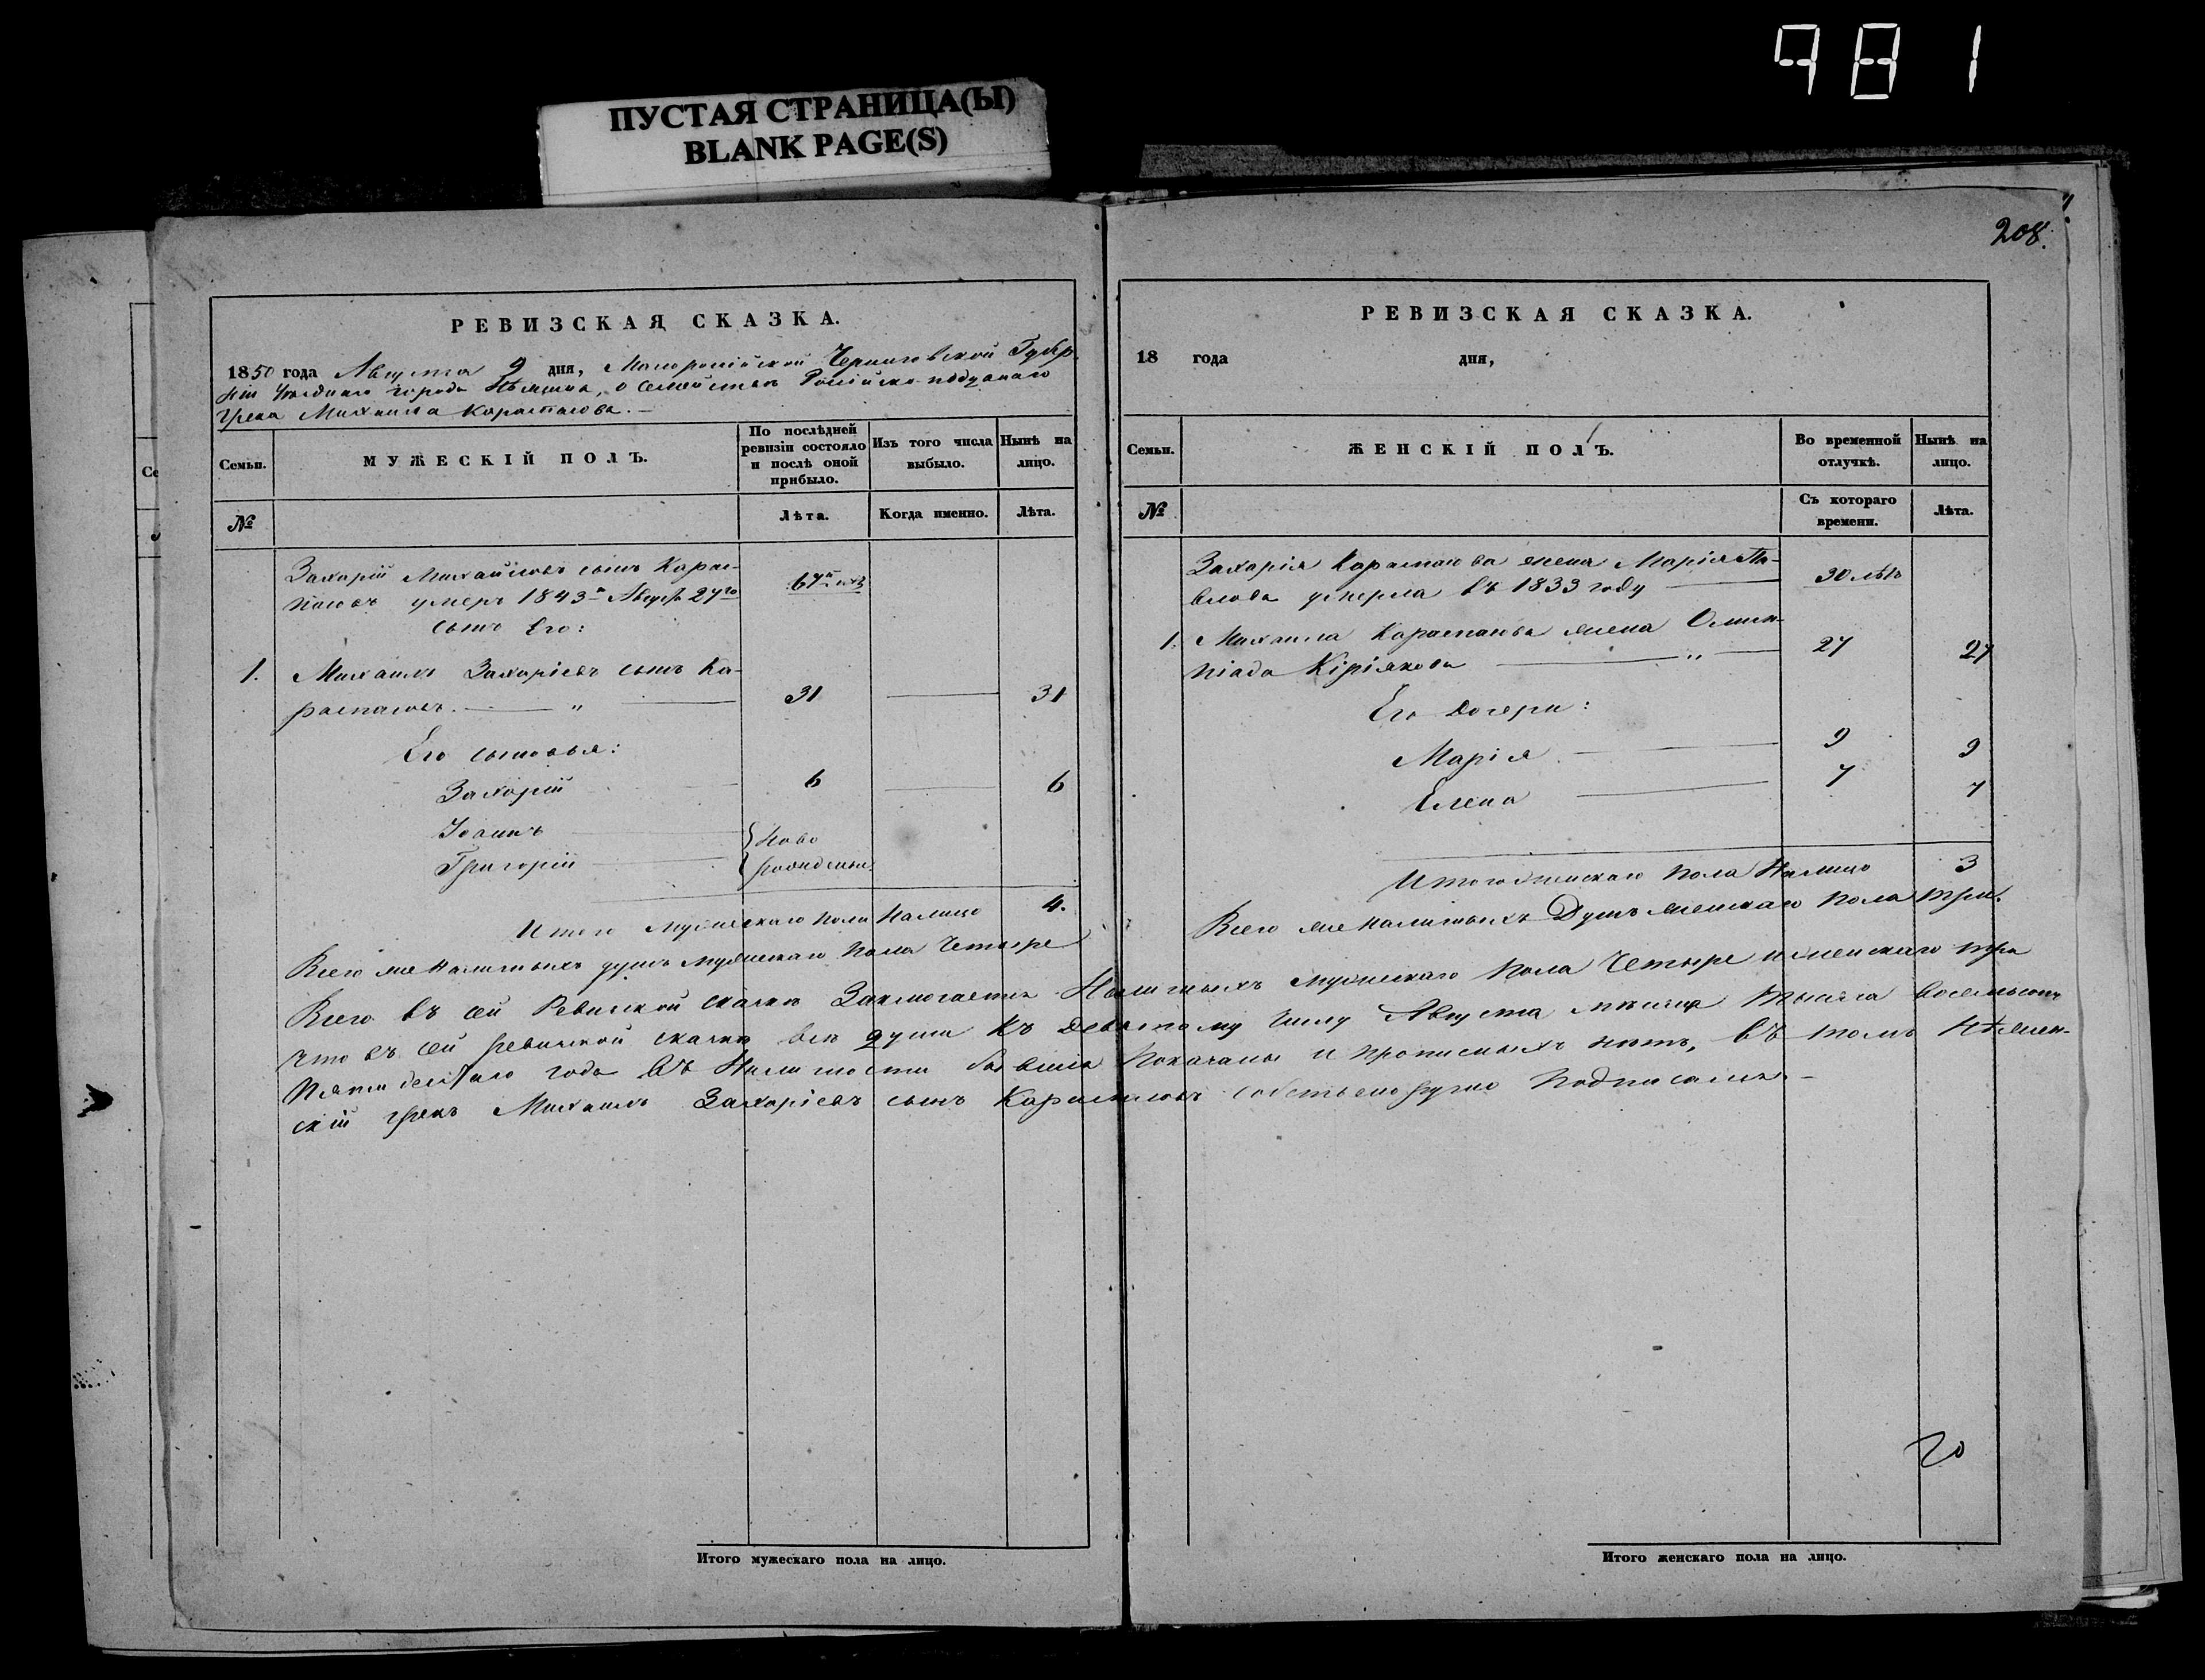 981
ПУСТАЯ СТРАНИЦА(Ы)
BLANK PAGE(S)
208.
РЕВИЗСКАЯ СКАЗКА.
1850 года Августа 9 дня, Малоросiйской Черниговской Губер-
нiи Уезднаго города Нѣжина, о Семействѣ Россiйско-подданаго
Грека Михаила Карастаѳова.—
Семьи.
МУЖЕСКІЙ ПОЛЪ.
По послѣдней ревизіи состояло и послѣ оной прибыло.
Изъ того числа выбыло.
Нынѣ на лицо.
№
Лѣта.
Когда именно.
Лѣта.
Захарiй Михайловъ сынъ Карас-
умеръ 1843 Авгус. 27го
67
сынъ Его:
1. Михаилъ Захарiевъ сынъ Ка-
31 — 31
Его сыновья:
Захарiй 6 — 6
Iоаннъ
Григорiй
{Ново
{рожденные
Итого Мужескаго пола На лицо 4.
Всего же Наличныхъ душъ мужескаго пола Четыре
РЕВИЗСКАЯ СКАЗКА.
18 года дня,
Семьи.
ЖЕНСКІЙ ПОЛЪ.
Во временной отлучкѣ.
Нынѣ на лицо.
№
Съ котораго времени.
Лѣта.
Захарiя жена Марiя Па-
влова умерла въ 1833 году — 30 лѣтъ
1. Михаила жена Олим-
пiада Кiрiякова — 27 27
Его Дочери:
Марiя — 9 9
Елена — 7 7
Итого женскаго пола На лицо 3
Всего же наличныхъ Душъ женскаго пола три.
Всего въ сей Ревизской сказкѣ Заключается Наличныхъ мужескаго пола Четыре и женскаго три
Что въ сей ревизской сказкѣ всѣ души Къ Девятому Числу Августа мѣсяца тысяча восемьсотъ
Пятидесятаго года Въ Наличности бывшiя Показаны и прописныхъ нѣтъ, Въ томъ Нѣжин-
скiй Грекъ Михаилъ Захарiевъ сынъ собственоручно Подписался.—
20
Итого мужескаго пола на лицо.
Итого женскаго пола на лицо.